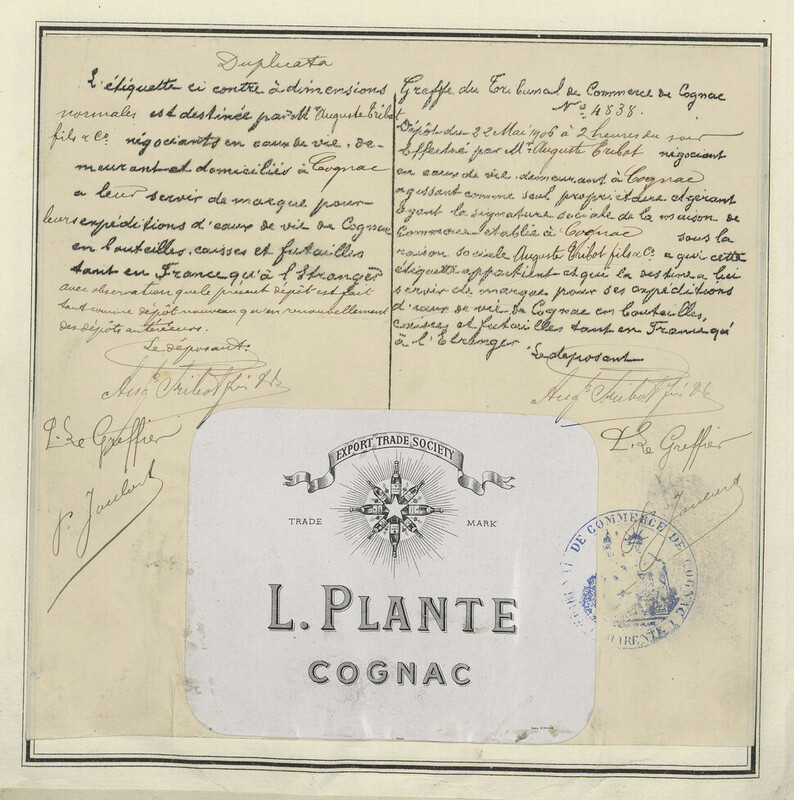 Duplicata
L'étiquette ci contre à dimensions
normales est destinée par M. Auguste Tribot
fils & Co. négociants en eaux de vie, de-
meurant et domiciliés à Cognac
a leur servir de marque pour
leurs expéditions d'eaux de vie de Cognac
en bouteilles, caisses et futailles
tant en France qu'à l'Etranger
avec observation que le présent dépôt est fait
tant comme dépôt nouveau qu'en renouvellement
des dépôts antérieurs.
Le déposant:
Augte Tribot fils & Co
P. Le Greffier
P. Joubert
Greffe du Tribunal de Commerce de Cognac
No. 4838.
Dépôt du 22 Mai 1906 à 2 heures du soir
Effectué par Mr. Auguste Tribot négociant
en eaux de vie, demeurant à Cognac
agissant comme seul propriétaire et gérant
ayant la signature sociale de la maison de
Commerce établie à Cognac sous la
raison sociale Auguste Tribot fils & Co. a qui cette
étiquette appartient et qui la destine a lui
servir de marque pour ses expéditions
d'eaux de vie de Cognac en bouteilles,
caisses et futailles tant en France qu'
à l'Etranger Le déposant
Augte Tribot fils & Co
P. Le Greffier
P. Joubert
EXPORT TRADE SOCIETY
TRADE MARK
L. PLANTE
COGNAC
TRIBUNAL DE COMMERCE DE COGNAC
CHARENTE